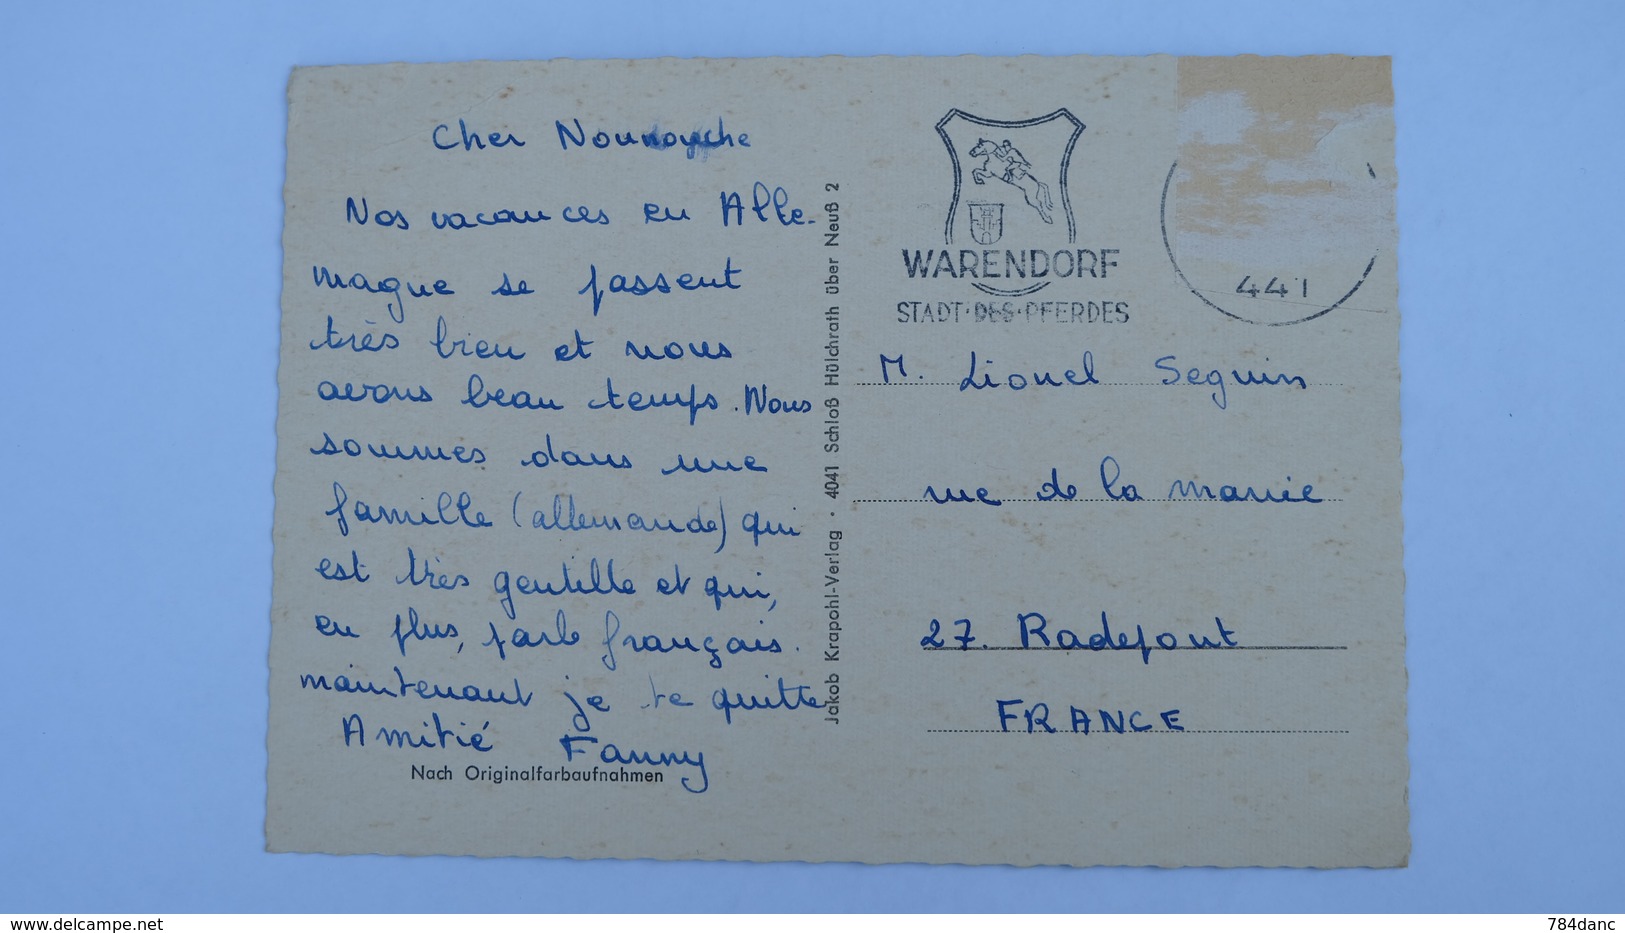 Cher Nounouche
Nos vacances en Alle-
magne se passent
très bien et nous
avons beau temps. Nous
sommes dans une
famille (allemande) qui
est très gentille et qui,
en plus, parle français.
maintenant je te quitte
Amitié Fanny
Nach Originalfarbaufnahmen
Jakob Krapohl-Verlag · 4041 Schloß Hülchrath über Neuß 2
WARENDORF
STADT·DES·PFERDES
441
M. Lionel Seguin
rue de la mairie
27. Radepont
FRANCE
www.delcampe.net
784danc